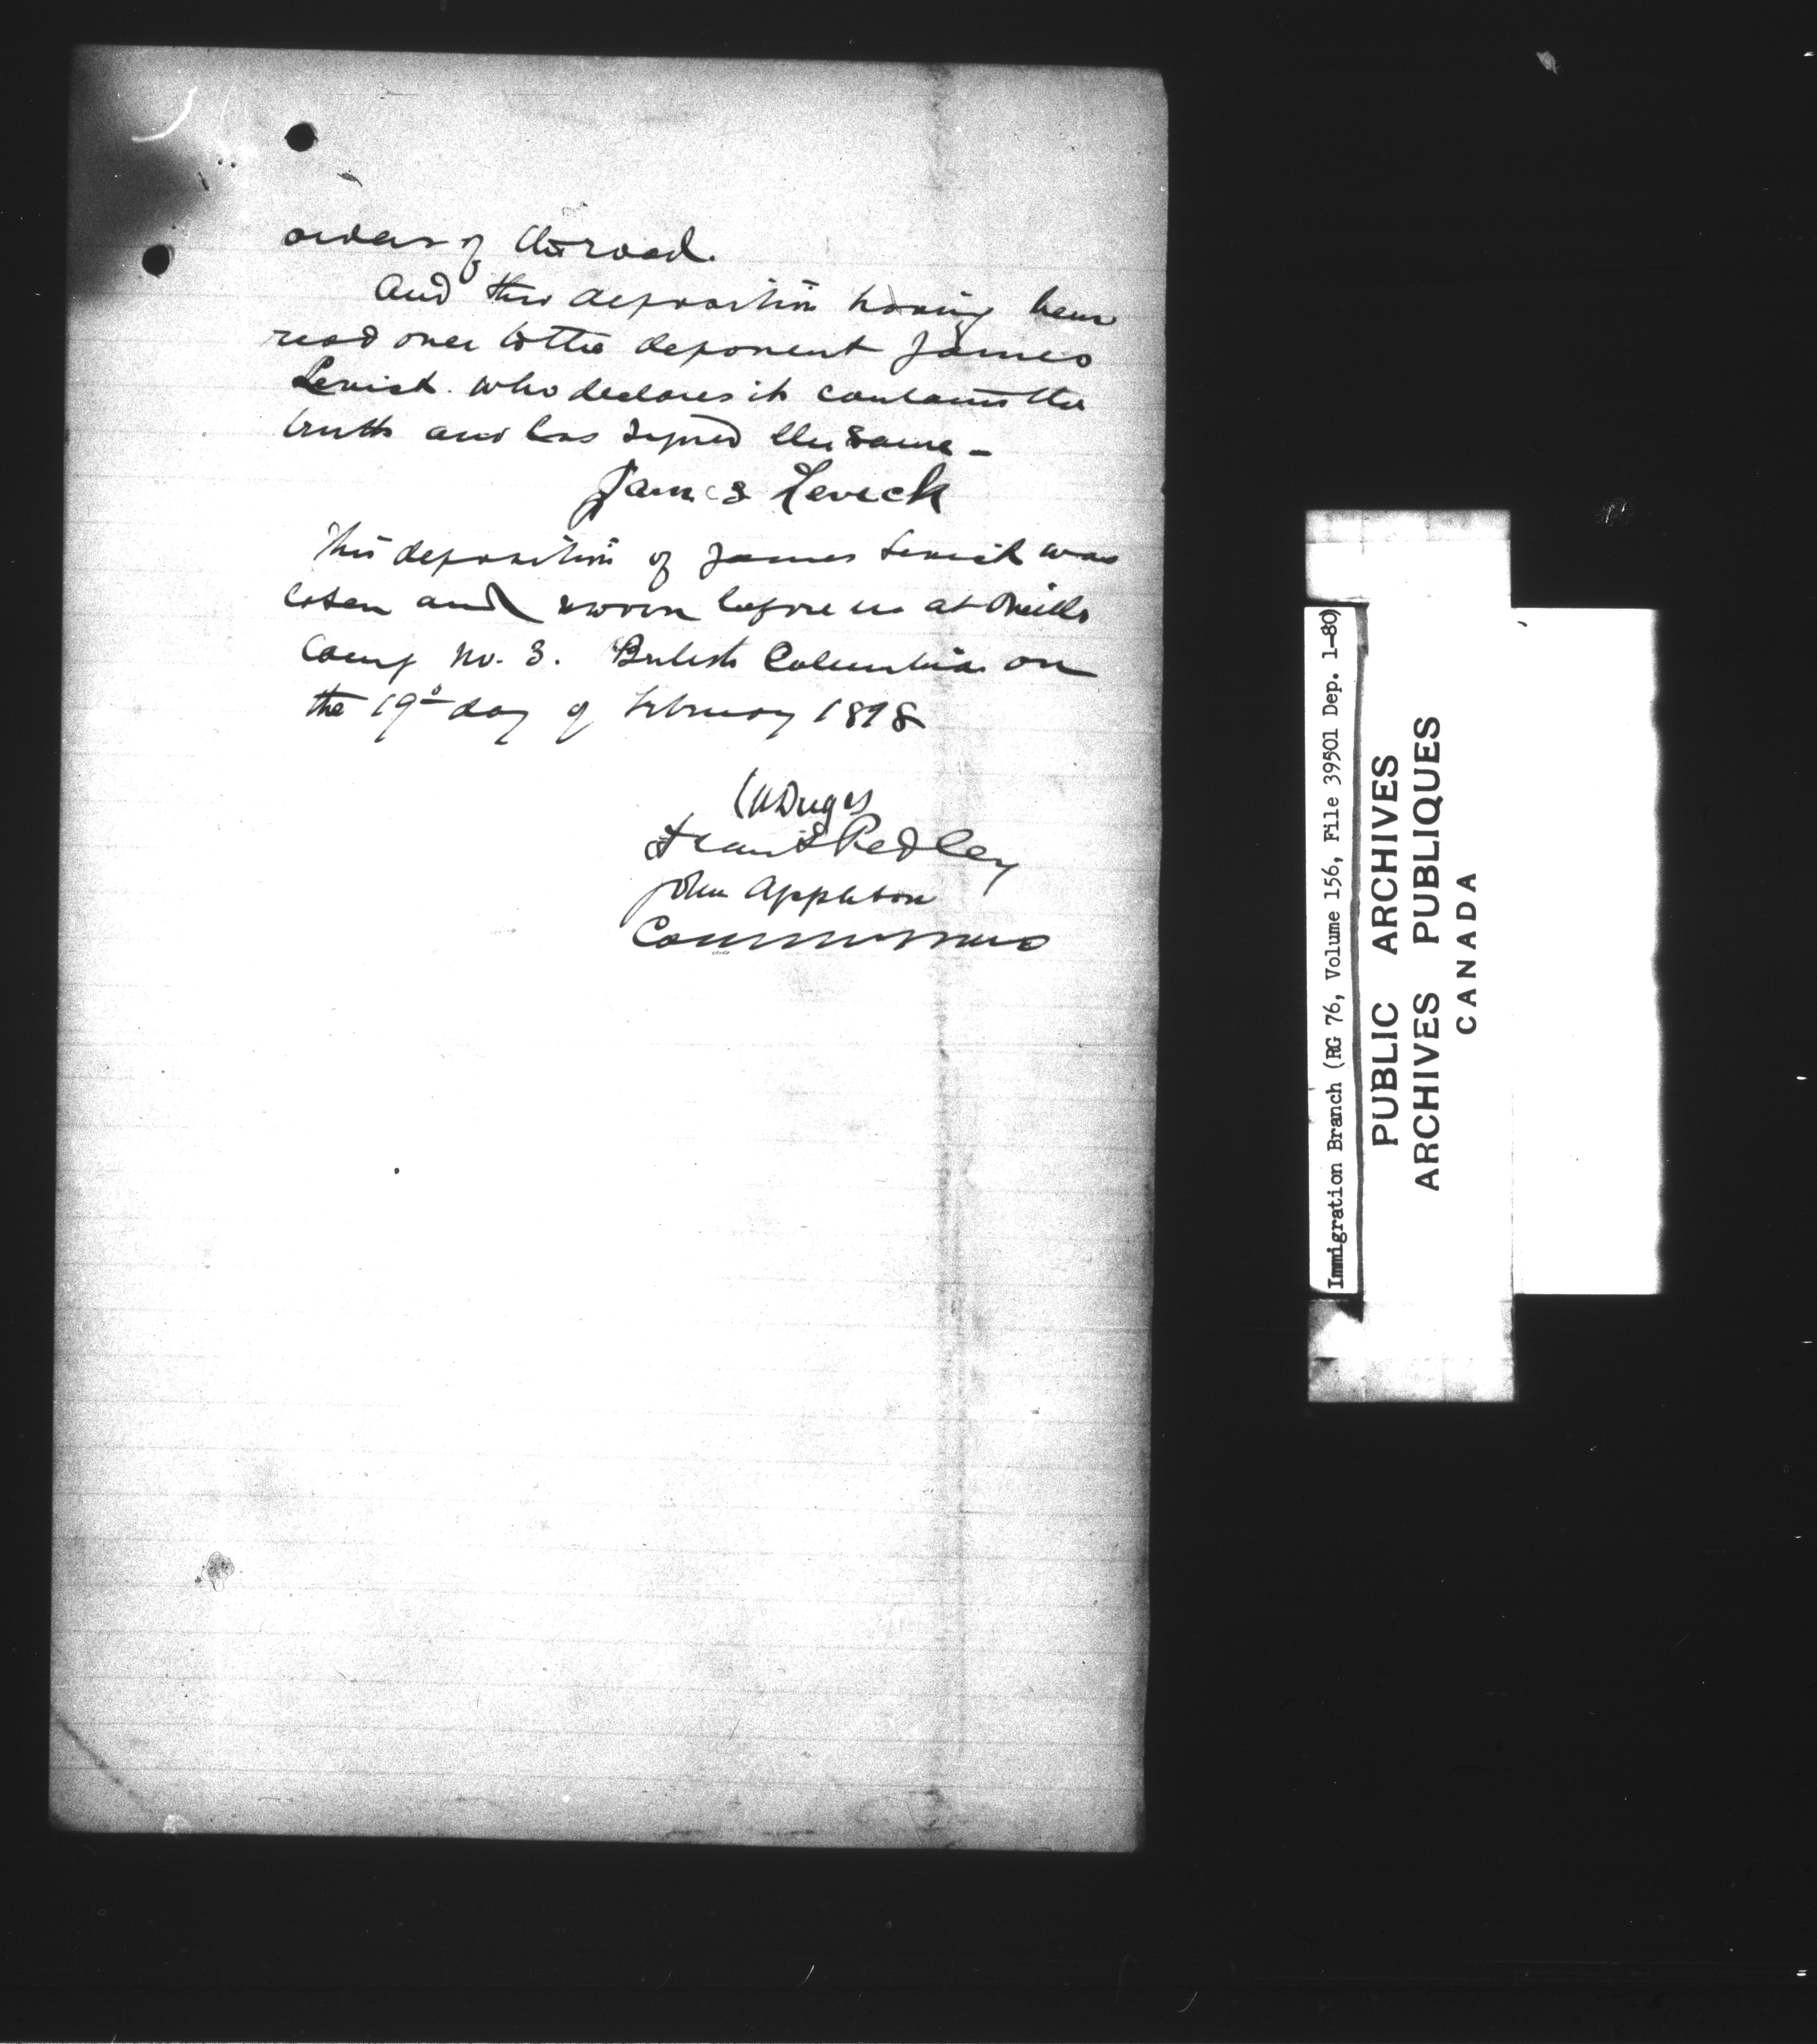 orders of the road.
And this deposition having been
read over to the deponent James
Levick who declares it contains the
truth and has signed the same -
James Levick
This deposition of James Levick was
taken and sworn before us at Neills
Camp No. 3. British Columbia on
the 19th day of February 1898
C A Dugas
Frank Pedley
John Appleton
Commissioners
Immigration Branch (RG 76, Volume 156, File 39501 Dep. 1-80)
PUBLIC ARCHIVES
ARCHIVES PUBLIQUES
CANADA